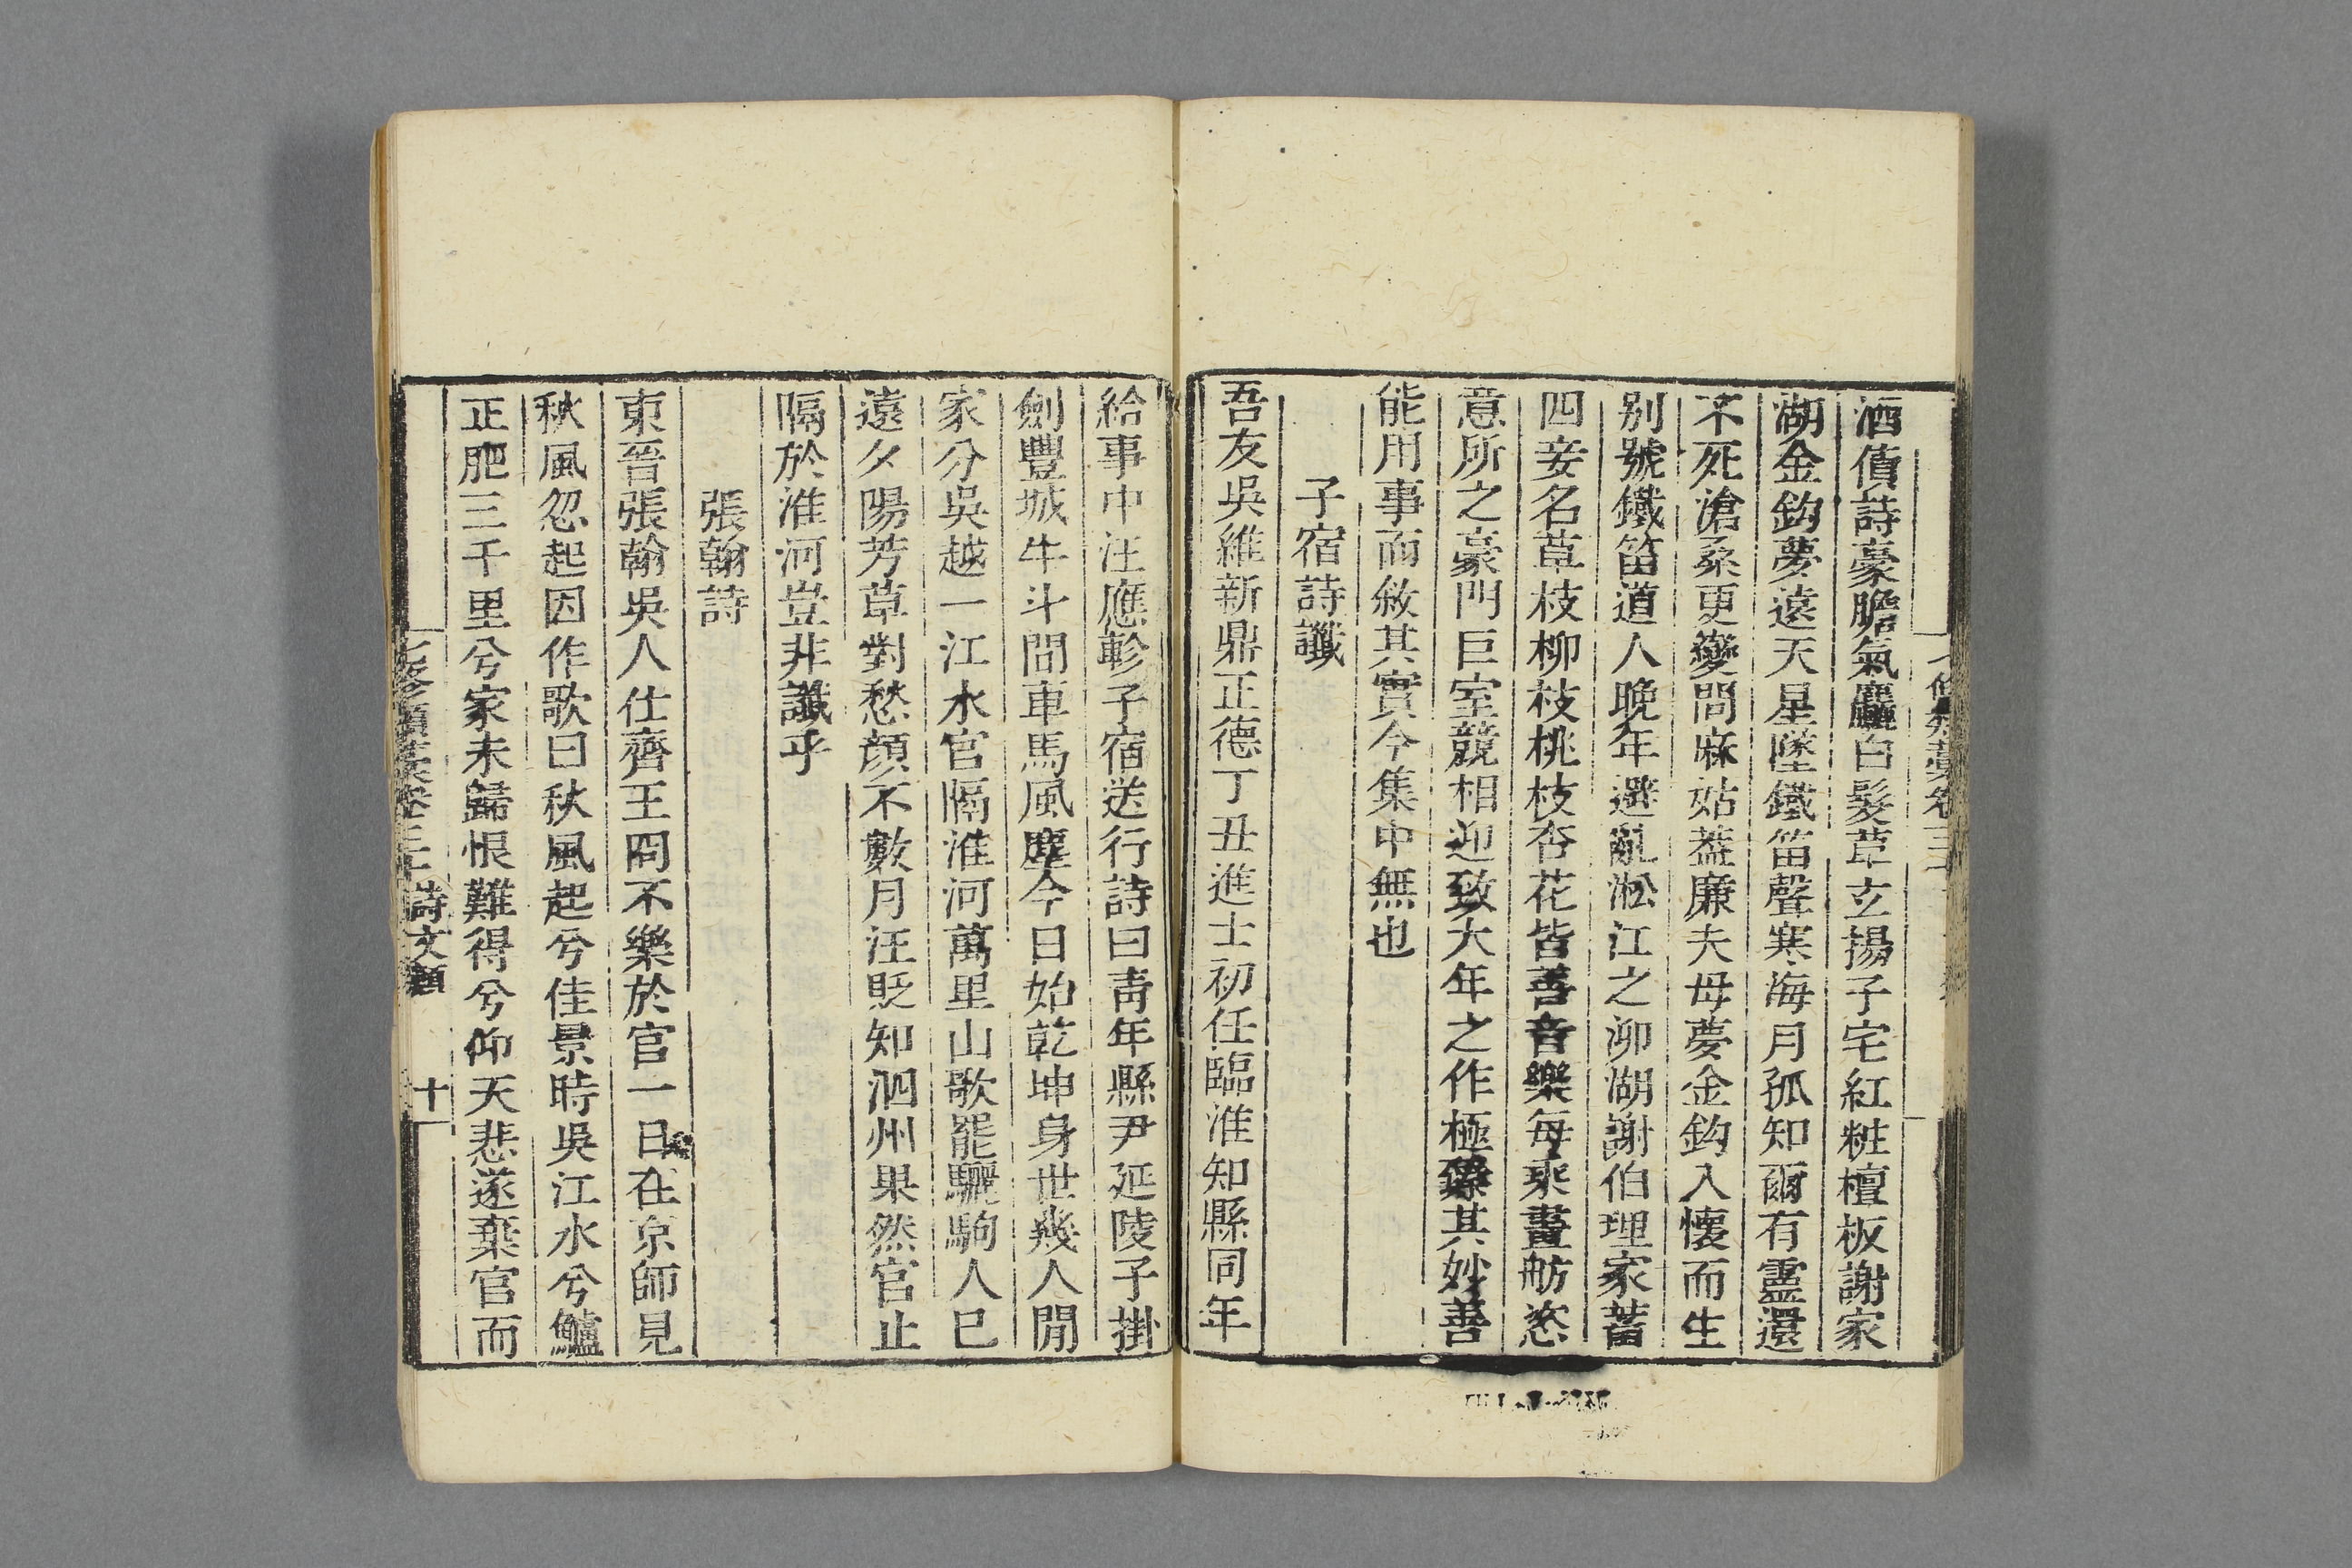 酒債詩豪膽氣麤白髮草玄揚子宅紅粧檀板謝家
湖金鈎夢遠天星墜鐵笛聲寒海月孤知爾有靈還
不死滄桑更變問麻姑蓋廉夫母夢金鈎入懷而生
别號鐵笛道人晚年避亂淞江之泖湖謝伯理家蓄
四妾名草枝柳枝桃枝杏花皆善音樂每乘畫舫恣
意所之豪門巨室競相迎致大年之作極臻其妙善
能用事而敘其實今集中無也
子宿詩讖
吾友吳維新鼎正德丁丑進士初任臨淮知縣同年
給事中汪應軫子宿送行詩曰青年縣尹延陵子掛
劍豐城牛斗間車馬風塵今日始乾坤身世幾人閒
家分吳越一江水官隔淮河萬里山歌罷驪駒人已
遠夕陽芳草對愁顏不數月汪貶知泗州果然官止
隔於淮河豈非讖乎
張翰詩
東晉張翰吳人仕齊王冏不樂於官一日在京師見
秋風忽起因作歌曰秋風起兮佳景時吳江水兮鱸
正肥三千里兮家未歸恨難得兮仰天悲遂棄官而
七修類藁卷三十 詩文類 十